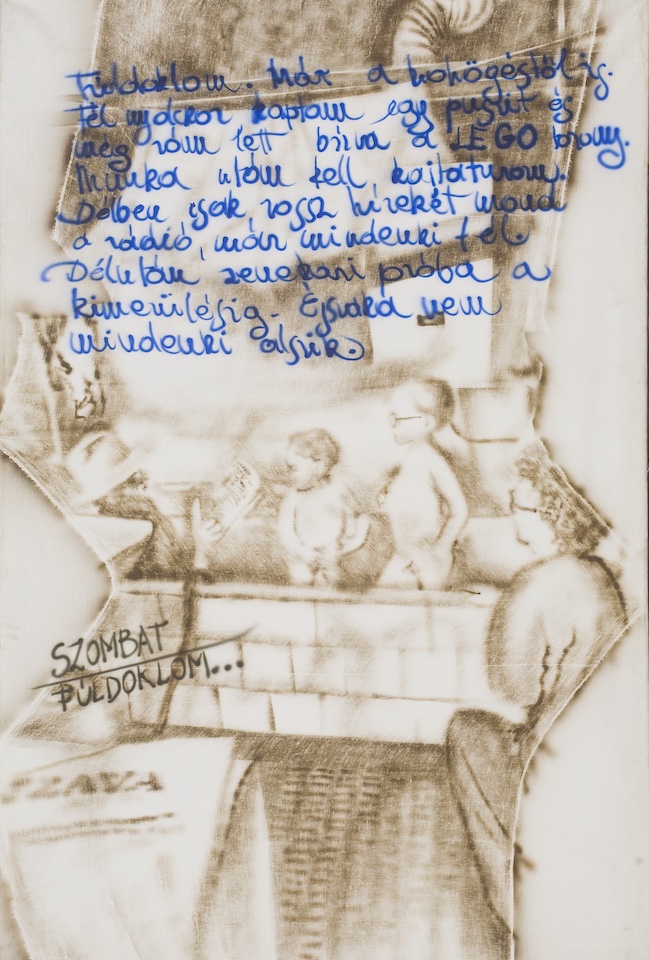 Fuldoklom. Már a köhögéstől is.
Fél nyolckor kaptam egy puszit és
meg rám lett bízva a LEGO torony.
Munka után kell
Délben csak rossz híreket mond
a rádió, már mindenki fél.
Délután zenekari próba a
kimerülésig. Éjszaka nem
mindenki alszik.
SZOMBAT
FULDOKLOM...
SZAVA